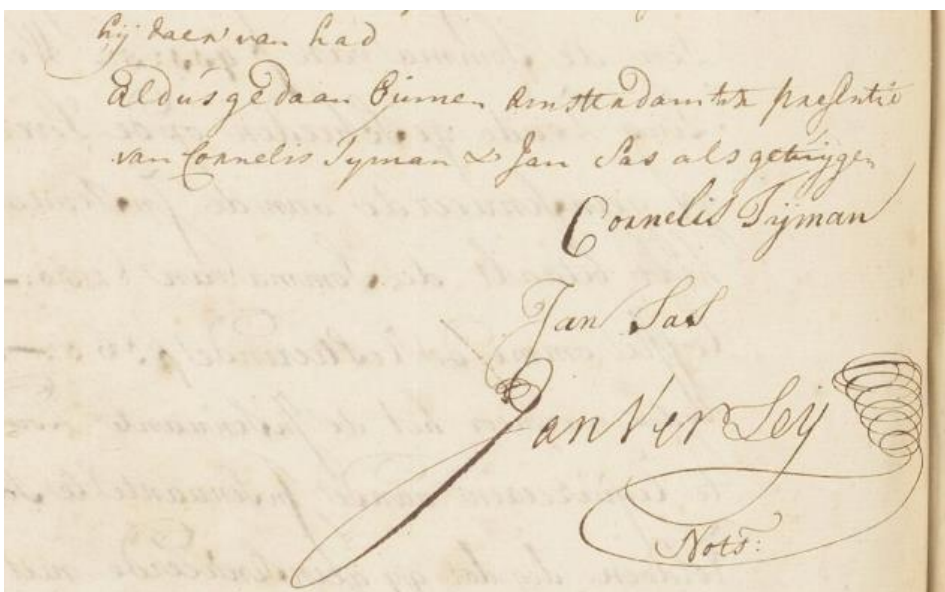 hij daer van had
Aldus gedaan binnen Amsterdam ter presentie
van Cornelis Tyman & Jan Sas als getuijgen
Cornelis Tijman
Jan Sas
Jan Ver Leij
Nots: